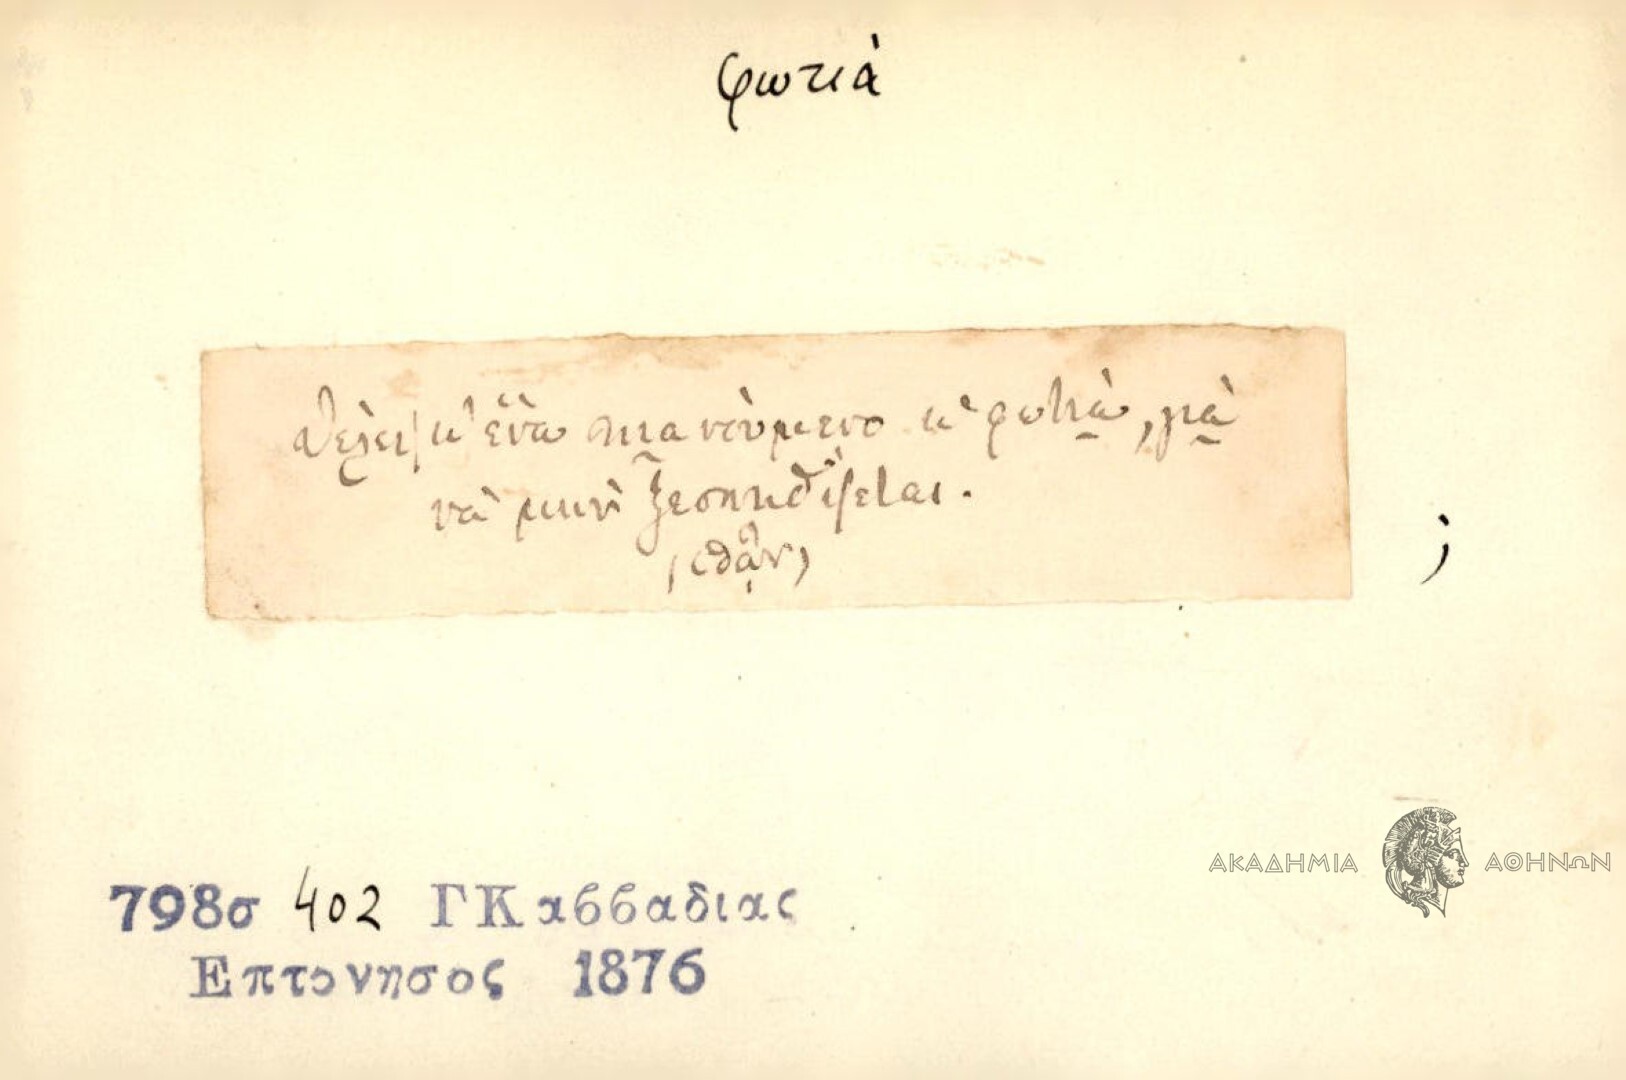 φωτιὰ
θέλει κ' ἕνα πιανούμενο κ' φωτιὰ, γιὰ
νὰ μὴν ξεσπιθίζεται.
;
798σ 402 ΓΚαββαδιας
Επτονησος 1876
ΑΚΑΔΗΜΙΑ ΑΘΗΝΩΝ